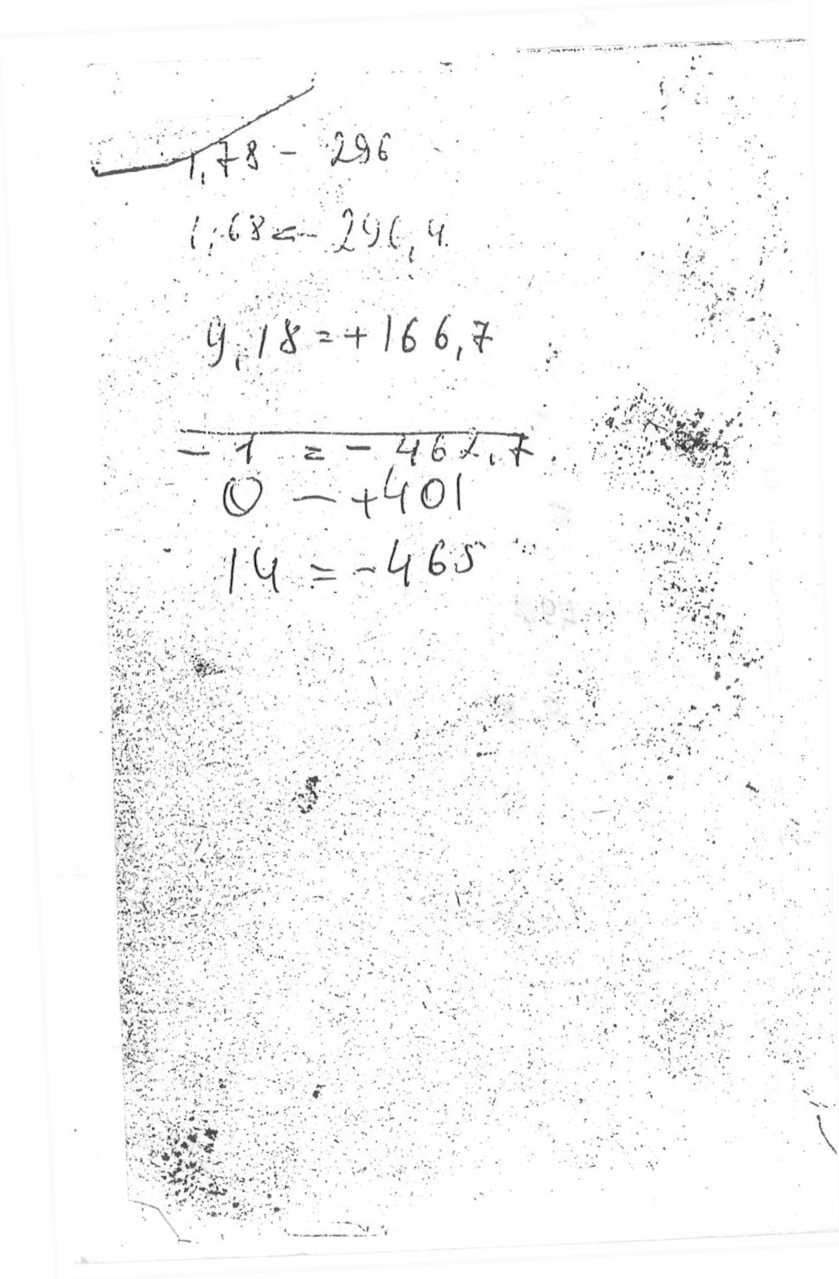 1,78 - 296
1,68 = - 296,4
9,18 = + 166,7
- 1 = - 462,7.
0 - +401
14 = - 465